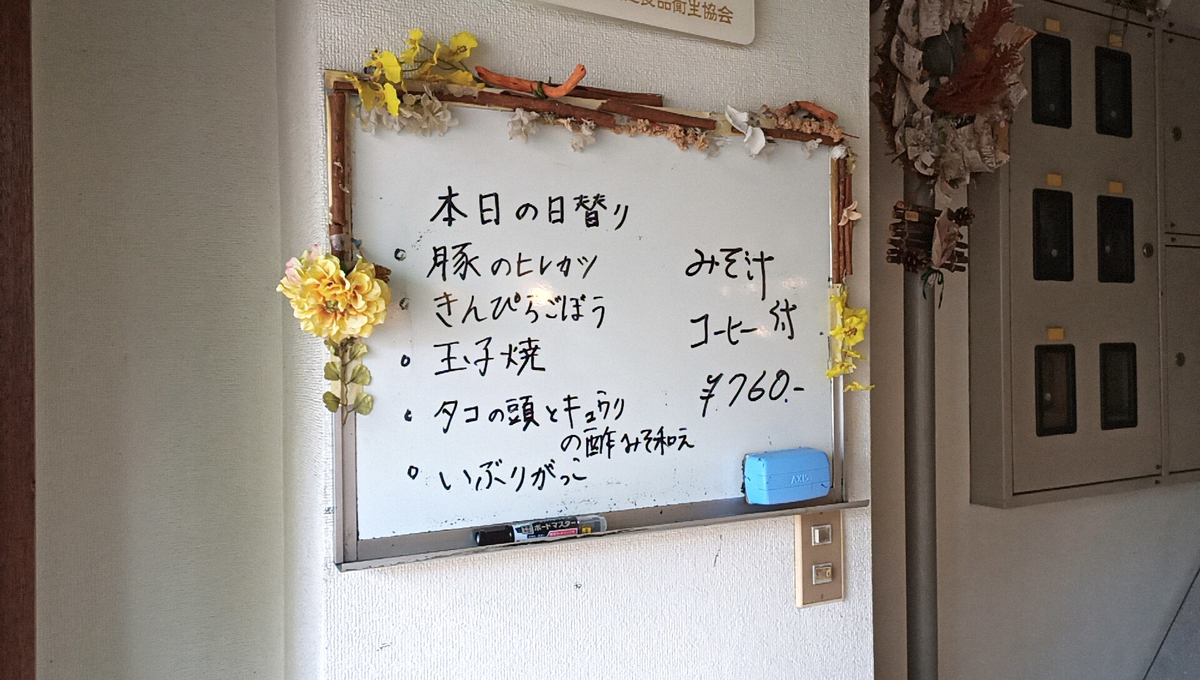 食品衛生協会
本日の日替り
豚のヒレカツ
きんぴらごぼう
玉子焼
タコの頭とキュウリ
の酢みそ和え
いぶりがっこ
みそ汁
コーヒー付
¥760.-
AXIS
ボードマスター